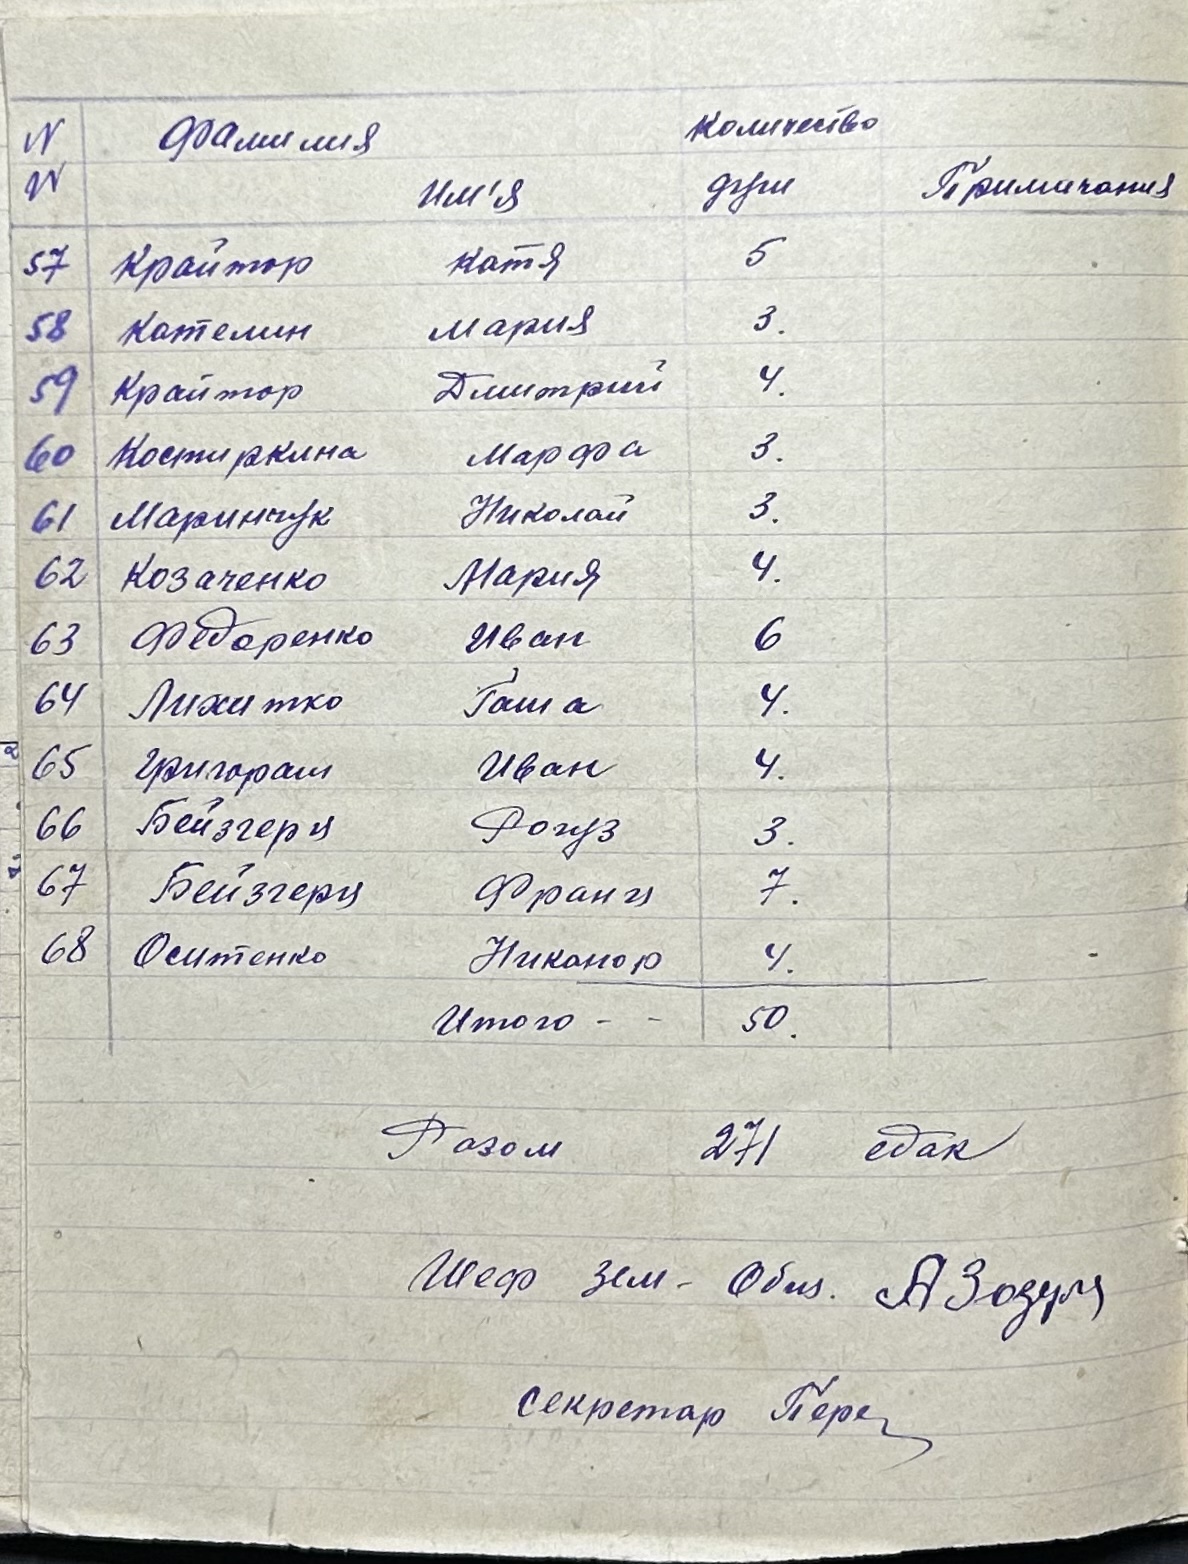 N Фамилия Количество
N Им'я душ Примичания
57 Крайтор Катя 5
58 Кателин Мария 3.
59 Крайтор Дмитрий 4.
60 Костиркина Марфа 3.
61 Маринчук Николай 3.
62 Козаченко Мария 4.
63 Федоренко Иван 6
64 Лихитко Гаша 4.
65 Григораш Иван 4.
66 Бейзгерц 3.
67 Бейзгерц Франц 7.
68 Оситенко Никанор 4.
Итого - - 50.
Разом 271 едак
Шеф Зем- Общ. А Зозуля
Секретар